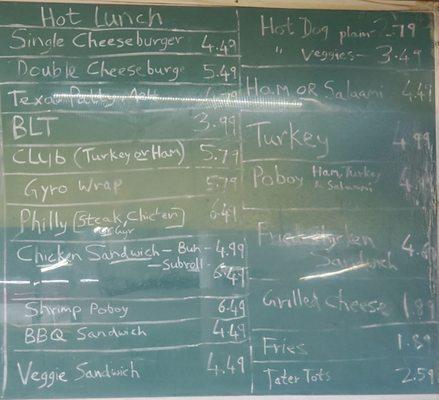 Hot Lunch
Single Cheeseburger 4.49
Double Cheeseburge 5.49
Texas Patty Melt
BLT 3.99
Club (Turkey or Ham) 5.79
Gyro Wrap 5.79
Philly [Steak, Chicken] 6.49
Chicken Sandwich - Bun - 4.99
- Subroll - 6.49
Shrimp Poboy 6.49
BBQ Sandwich 4.49
Veggie Sandwich 4.49
Hot Dog plain - 2.79
" Veggies - 3.49
Ham or Salaami 4.49
Turkey 4.99
Poboy Ham, Turkey & Salaami
Fried Chicken Sandwich
Grilled Cheese 1.89
Fries 1.89
Tater Tots 2.59